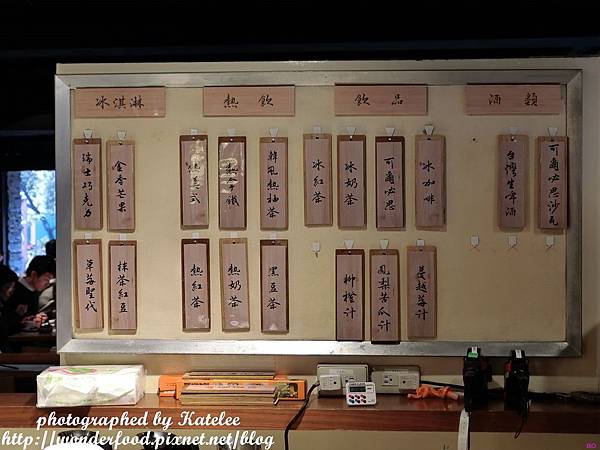 冰淇淋
熱飲
飲品
酒類
瑞士巧克力
金香芒果
草莓聖代
抹茶紅豆
熱美式
熱拿鐵
韓風熱柚茶
熱紅茶
熱奶茶
黑豆茶
冰紅茶
冰奶茶
可爾必思
冰咖啡
柳橙汁
鳳梨苦瓜汁
蔓越莓汁
台灣生啤酒
可爾必思沙瓦
photographed by Katelee
http://wonderfood.pixnet.net/blog